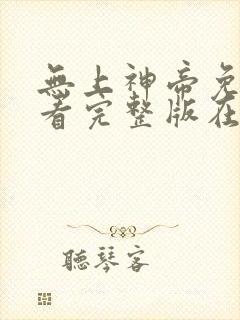 無上神帝免
看完整版在
聽琴客